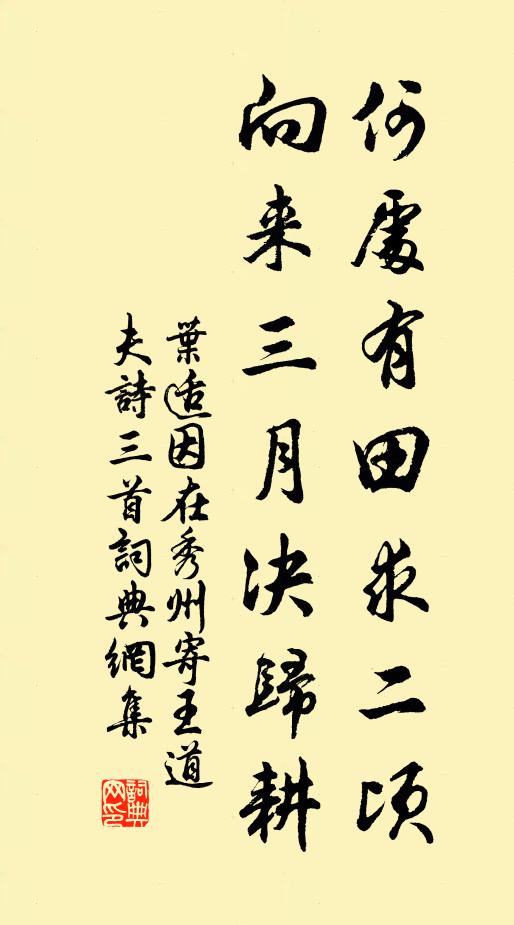 何處有田求二頃
向来三月决歸耕
葉适因在秀州寄王道
夫詩三首詞典網集
詞典
网印